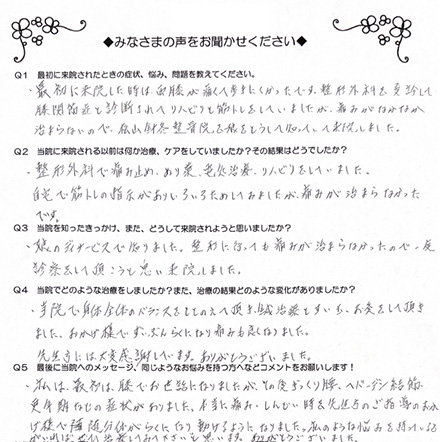 ◆みなさまの声をお聞かせください◆
Q1 最初に来院されたときの症状、悩み、問題を教えてください。
・最初に来院した時は両膝が痛くて歩きにくかったです。整形外科を受診して
膝関節症と診断されてリハビリと筋トレをしていましたが、痛みがなかなか
治まらないので、整骨院を 知って来院しました。
Q2 当院に来院される以前は何か治療、ケアをしていましたか?その結果はどうでしたか?
・整形外科で痛み止め、ぬり薬、電気治療、リハビリをしていました。
自宅で筋トレの指示がありいろいろためしてみましたが痛みが治まらなかった
です。
Q3 当院を知ったきっかけ、また、どうして来院されようと思いましたか?
・娘のデイサービスで知りました。整形に行っても痛みが治まらなかったので一度
診察をして頂こうと思い来院しました。
Q4 当院でどのような治療をしましたか?また、治療の結果どのような変化がありましたか?
・当院で身体全体のバランスをととのえて頂き、鍼治療とすいだま、お灸をして頂き
ました。おかげ様でずいぶんらくになり痛みも良くなりました。
先生方には大変感謝しています。ありがとうございました。
Q5 最後に当院へのメッセージ、同じようなお悩みを持つ方へなどコメントをお願いします!
私は、最初は、膝でお世話になりましたがその後ぎっくり腰、ヘバーデン結節
更年期などの症状がありました。本当に痛み・しんどい時を先生方のご指導のおか
げ様で随分体がらくになり動けるようになりました。私のような悩みを持っている